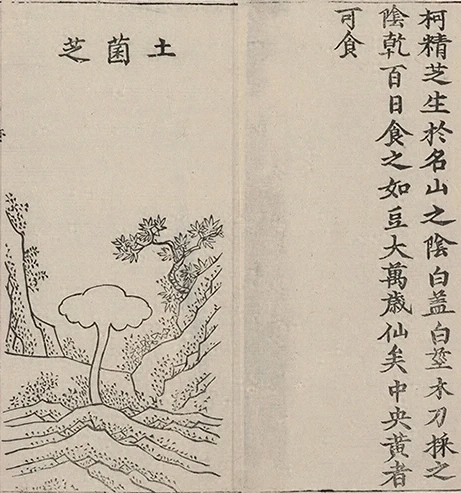 柯精芝生於名山之陰白盖白莖木刀採之
陰乾百日食之如豆大萬歲仙矣中央黃者
可食
土菌芝